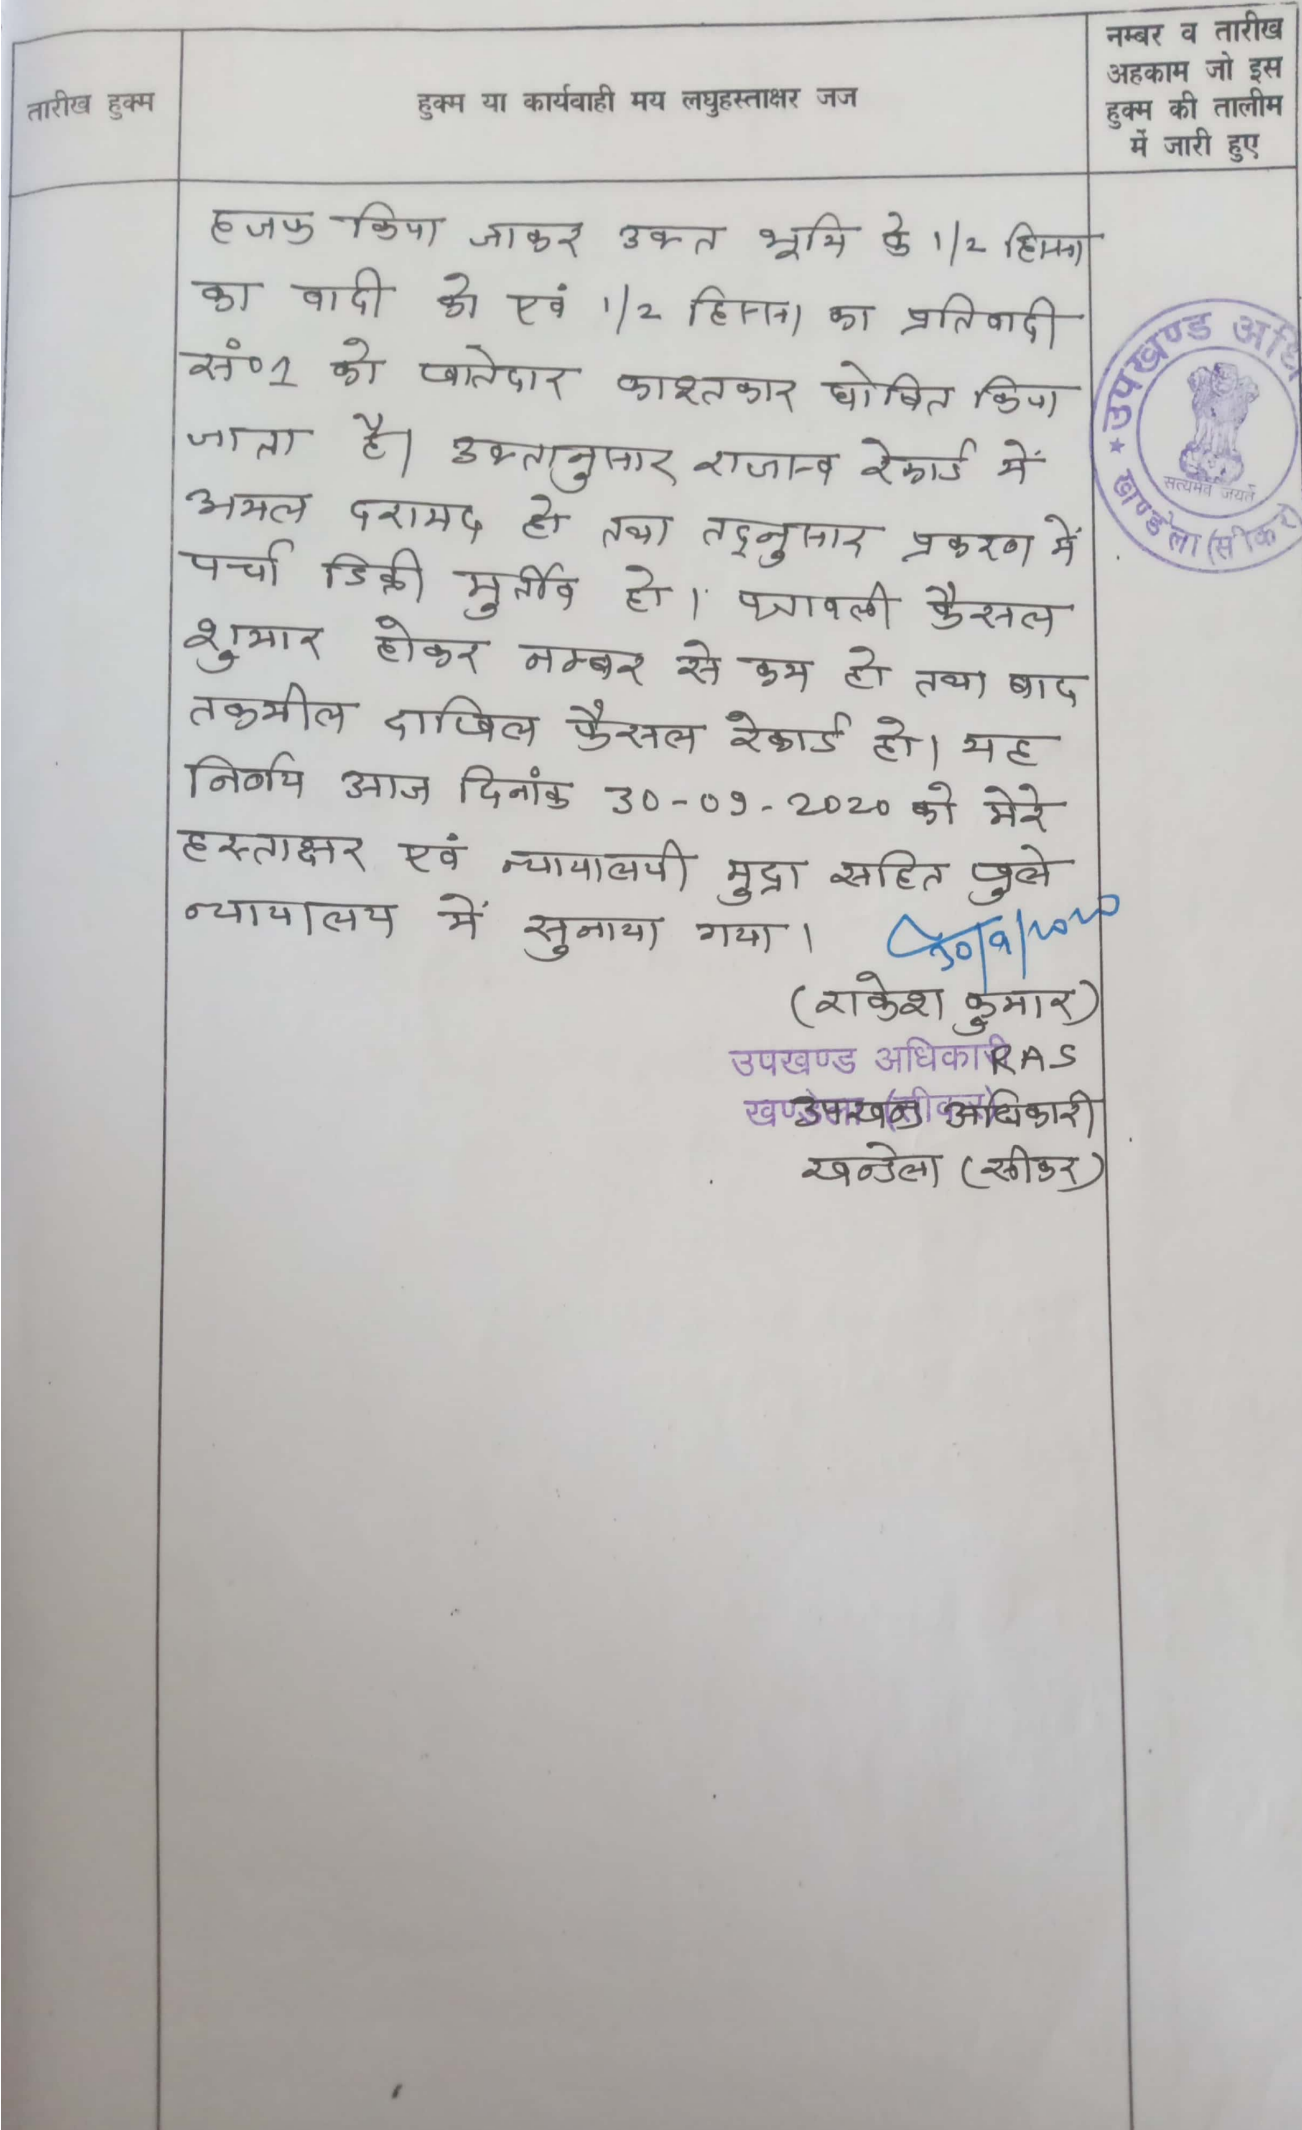 तारीख हुक्म
हुक्म या कार्यवाही मय लघुहस्ताक्षर जज
नम्बर व तारीख
अहकाम जो इस
हुक्म की तालीम
में जारी हुए
हजफ किया जाकर उक्त भूमि के 1/2 हिस्सा
का वादी को एवं 1/2 हिस्सा का प्रतिवादी
सं०1 को खातेदार काश्तकार घोषित किया
जाता है। उक्तानुसार राजस्व रेकार्ड में
अमल दरामद हो तथा तद्नुसार प्रकरण में
पर्चा डिक्री मुर्तीब हो। पत्रावली फैसल
शुमार होकर नम्बर से कम हो तथा बाद
तकमील दाखिल फैसल रेकार्ड हो। यह
निर्णय आज दिनांक 30-09-2020 को मेरे
हस्ताक्षर एवं न्यायालयी मुद्रा सहित खुले
न्यायालय में सुनाया गया।
30/9/2020
(राकेश कुमार)
उपखण्ड अधिकारी RAS
उपखण्ड अधिकारी
खण्डेला (सीकर)
खन्डेला (सीकर)
उपखण्ड अधि
सत्यमेव जयते
खण्डेला (सीकर)